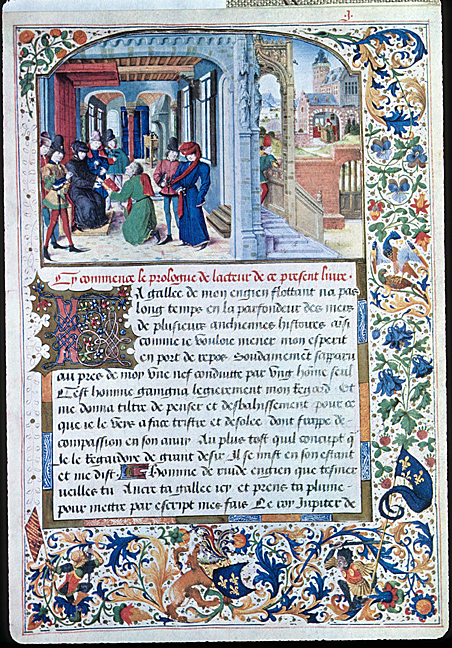 Cy commence le prologue de lacteur de ce present livre.
La gallee de mon engien flottant na pas
long temps en la parfondeur des mers
de plusieurs anchiennes histoires ainsi
comme ie vouloie mener mon esperit
en port de repos Soudainement sapparu
au pres de moy une nef conduitte par ung home seul
Cest homme gaingna legierement mon regard Et
me donna tiltre de penser et desbahissement pour ce
que ie le veis a face triste et desolee dont iarpe de
compassion en son amy Au plus tost quil concept q
Ie le regardoye de grant desir Il se mist en son estant
et me dist Homme de rude engien que tesmer
veilles tu Ancre ta gallee icy et prens ta plume
pour mettre par escript mes fais Le roy Jupiter de